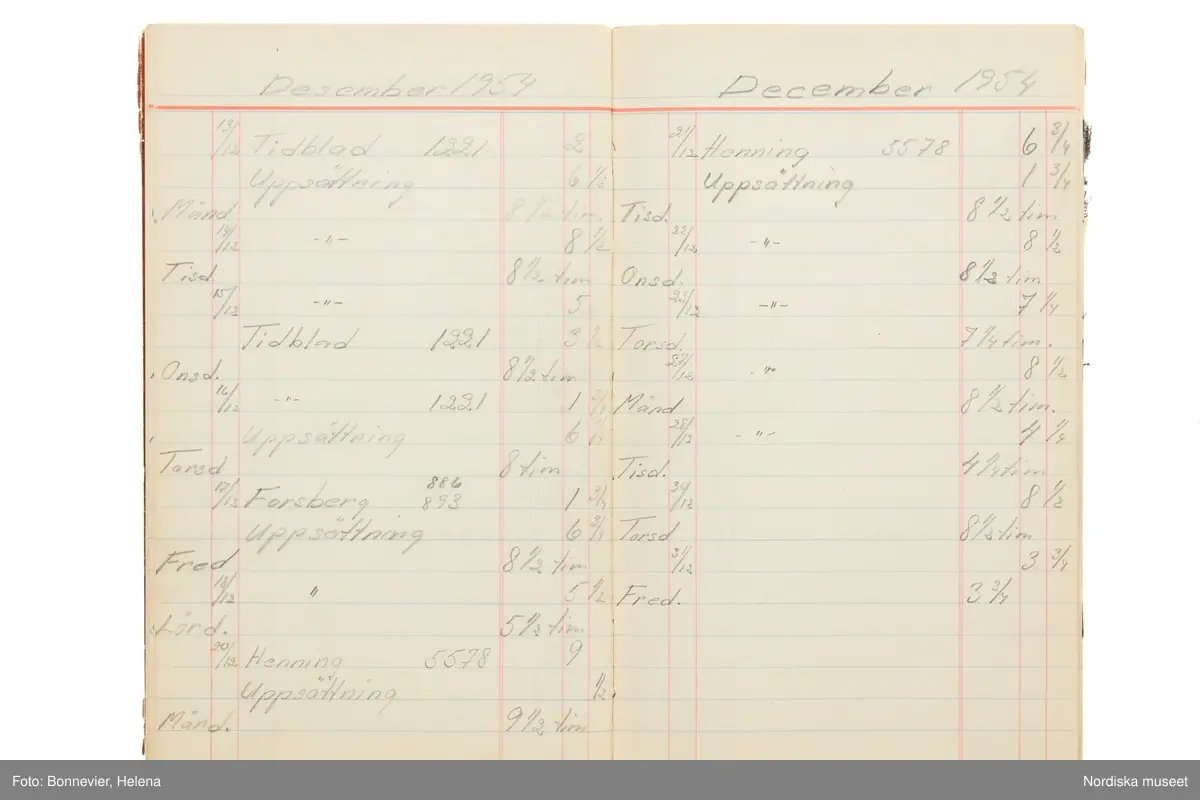 Desember 1954
13/12 Tidblad 1221 2
Uppsättning 6 1/2
Månd 8 1/2 tim
14/12 -"- 8 1/2
Tisd. 8 1/2 tim
15/12 -"- 5
Tidblad 1221 3 1/2
Onsd. 8 1/2 tim
16/12 -"- 1221 1 3/4
Uppsättning 6 1/4
Torsd 8 tim
886
17/12 Forsberg 893 1 3/4
Uppsättning 6 3/4
Fred 8 1/2 tim
18/12 " 5 1/2
Lörd. 5 1/2 tim
20/12 Henning 5578 9
Uppsättning 1/2
Månd. 9 1/2 tim
December 1954
21/12 Henning 5578 6 3/4
Uppsättning 1 3/4
Tisd. 8 1/2 tim
22/12 -"- 8 1/2
Onsd. 8 1/2 tim
23/12 -"- 7 1/4
Torsd. 7 1/4 tim.
27/12 -"- 8 1/2
Månd 8 1/2 tim.
28/12 -"- 4 1/4
Tisd. 4 1/4 tim
/12 8 1/2
Torsd 8 1/2 tim
31/12 3 3/4
Fred. 3 3/4
Foto: Bonnevier, Helena
Nordiska museet